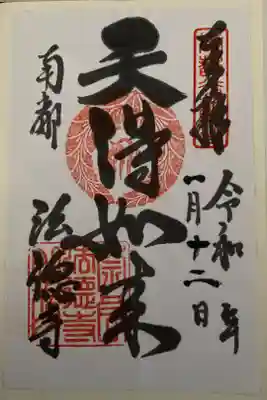 奉拝
令和年
一月十二日
天得如来
南都
法徳寺